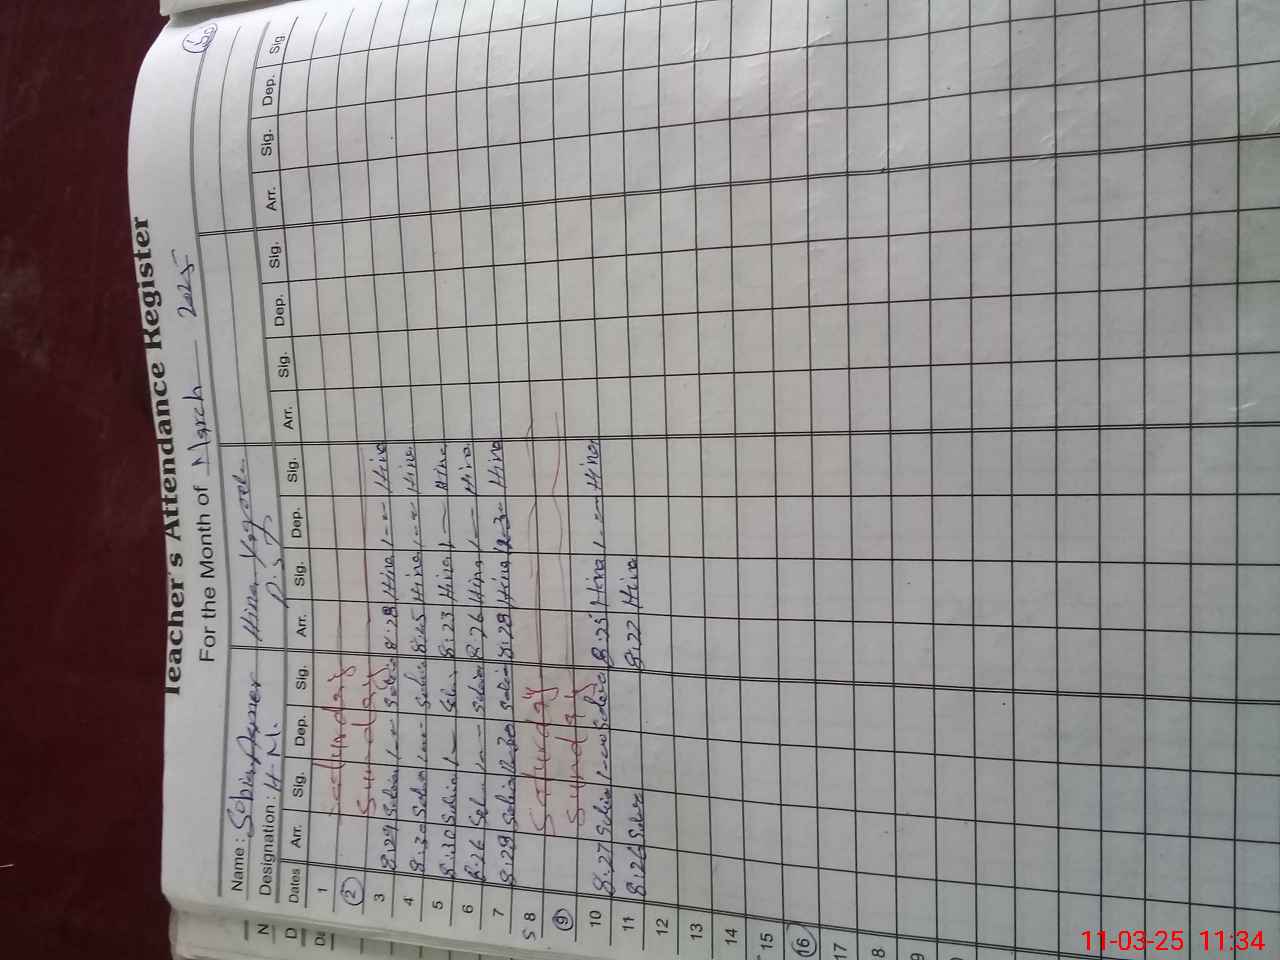 Teacher's Attendance Register
For the Month of March 2025
Name : Sobia Hina
Designation : H.M. P.S.T
Dates Arr. Sig. Dep. Sig. Arr. Sig. Dep. Sig. Arr. Sig. Dep. Sig. Arr. Sig. Dep. Sig
1 Saturday
2 Sunday
3 8:29 Sobia 1-- Sobia 8:28 Hina 1-- Hina
4 8:30 Sobia 1-- Sobia 8:25 Hina 1-- Hina
5 8:30 Sobia 1- 8:23 Hina 1- Hina
6 8:26 1-- Sobia 8:26 Hina 1- Hina
7 8:29 Sobia 12-30 Sobia 8:28 Hina Hina
S 8 Saturday
9 Sunday
10 8:27 Sobia 1-00 Sobia 8:25 Hina 1-- Hina
11 8:26 8:22 Hina
12
13
14
15
16
17
8
9
N
D
11-03-25 11:34